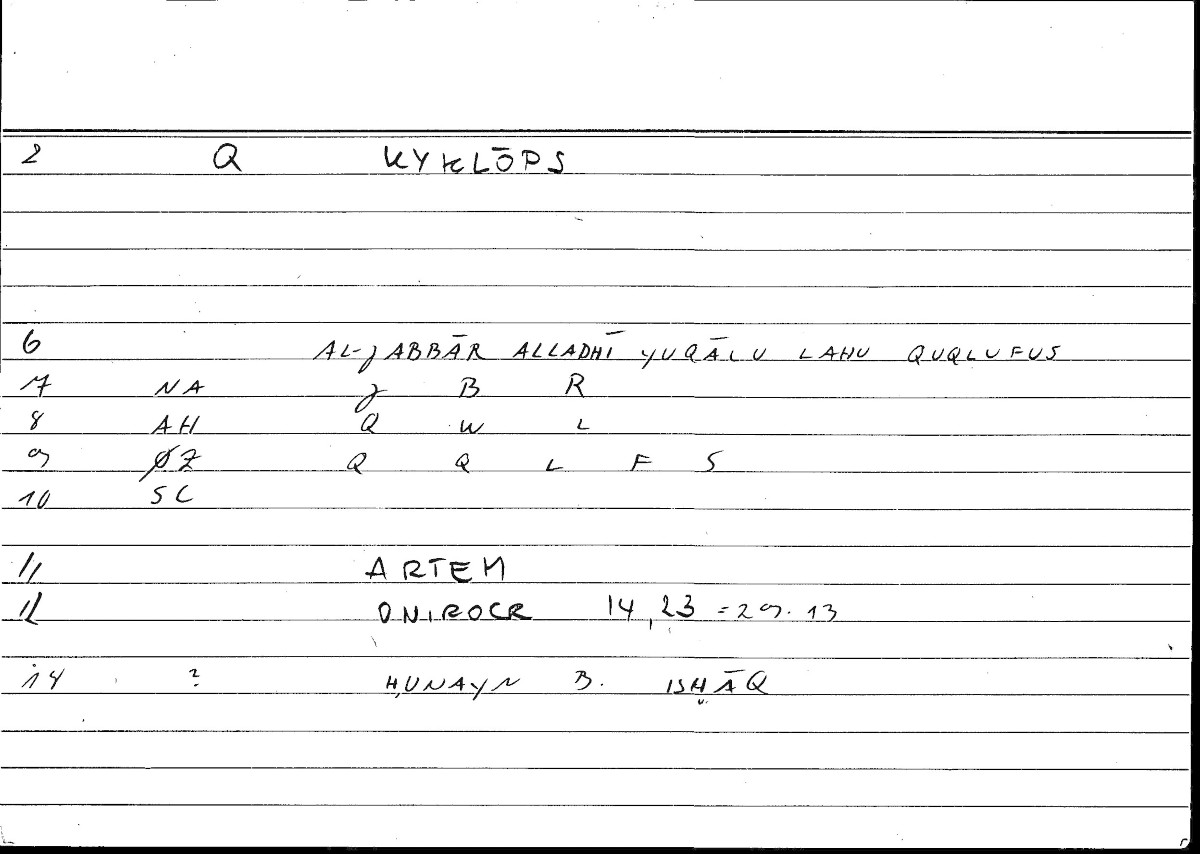 2 Q KYKLŌPS
6 AL-JABBĀR ALLADHĪ YUQĀLU LAHU QUQLUFUS
7 NA J B R
8 AH Q W L
9 ØZ Q Q L F S
10 SC
11 ARTEM
12 ONIROCR 14,23 = 29.13
14 ? ḤUNAYN B. ISḤĀQ